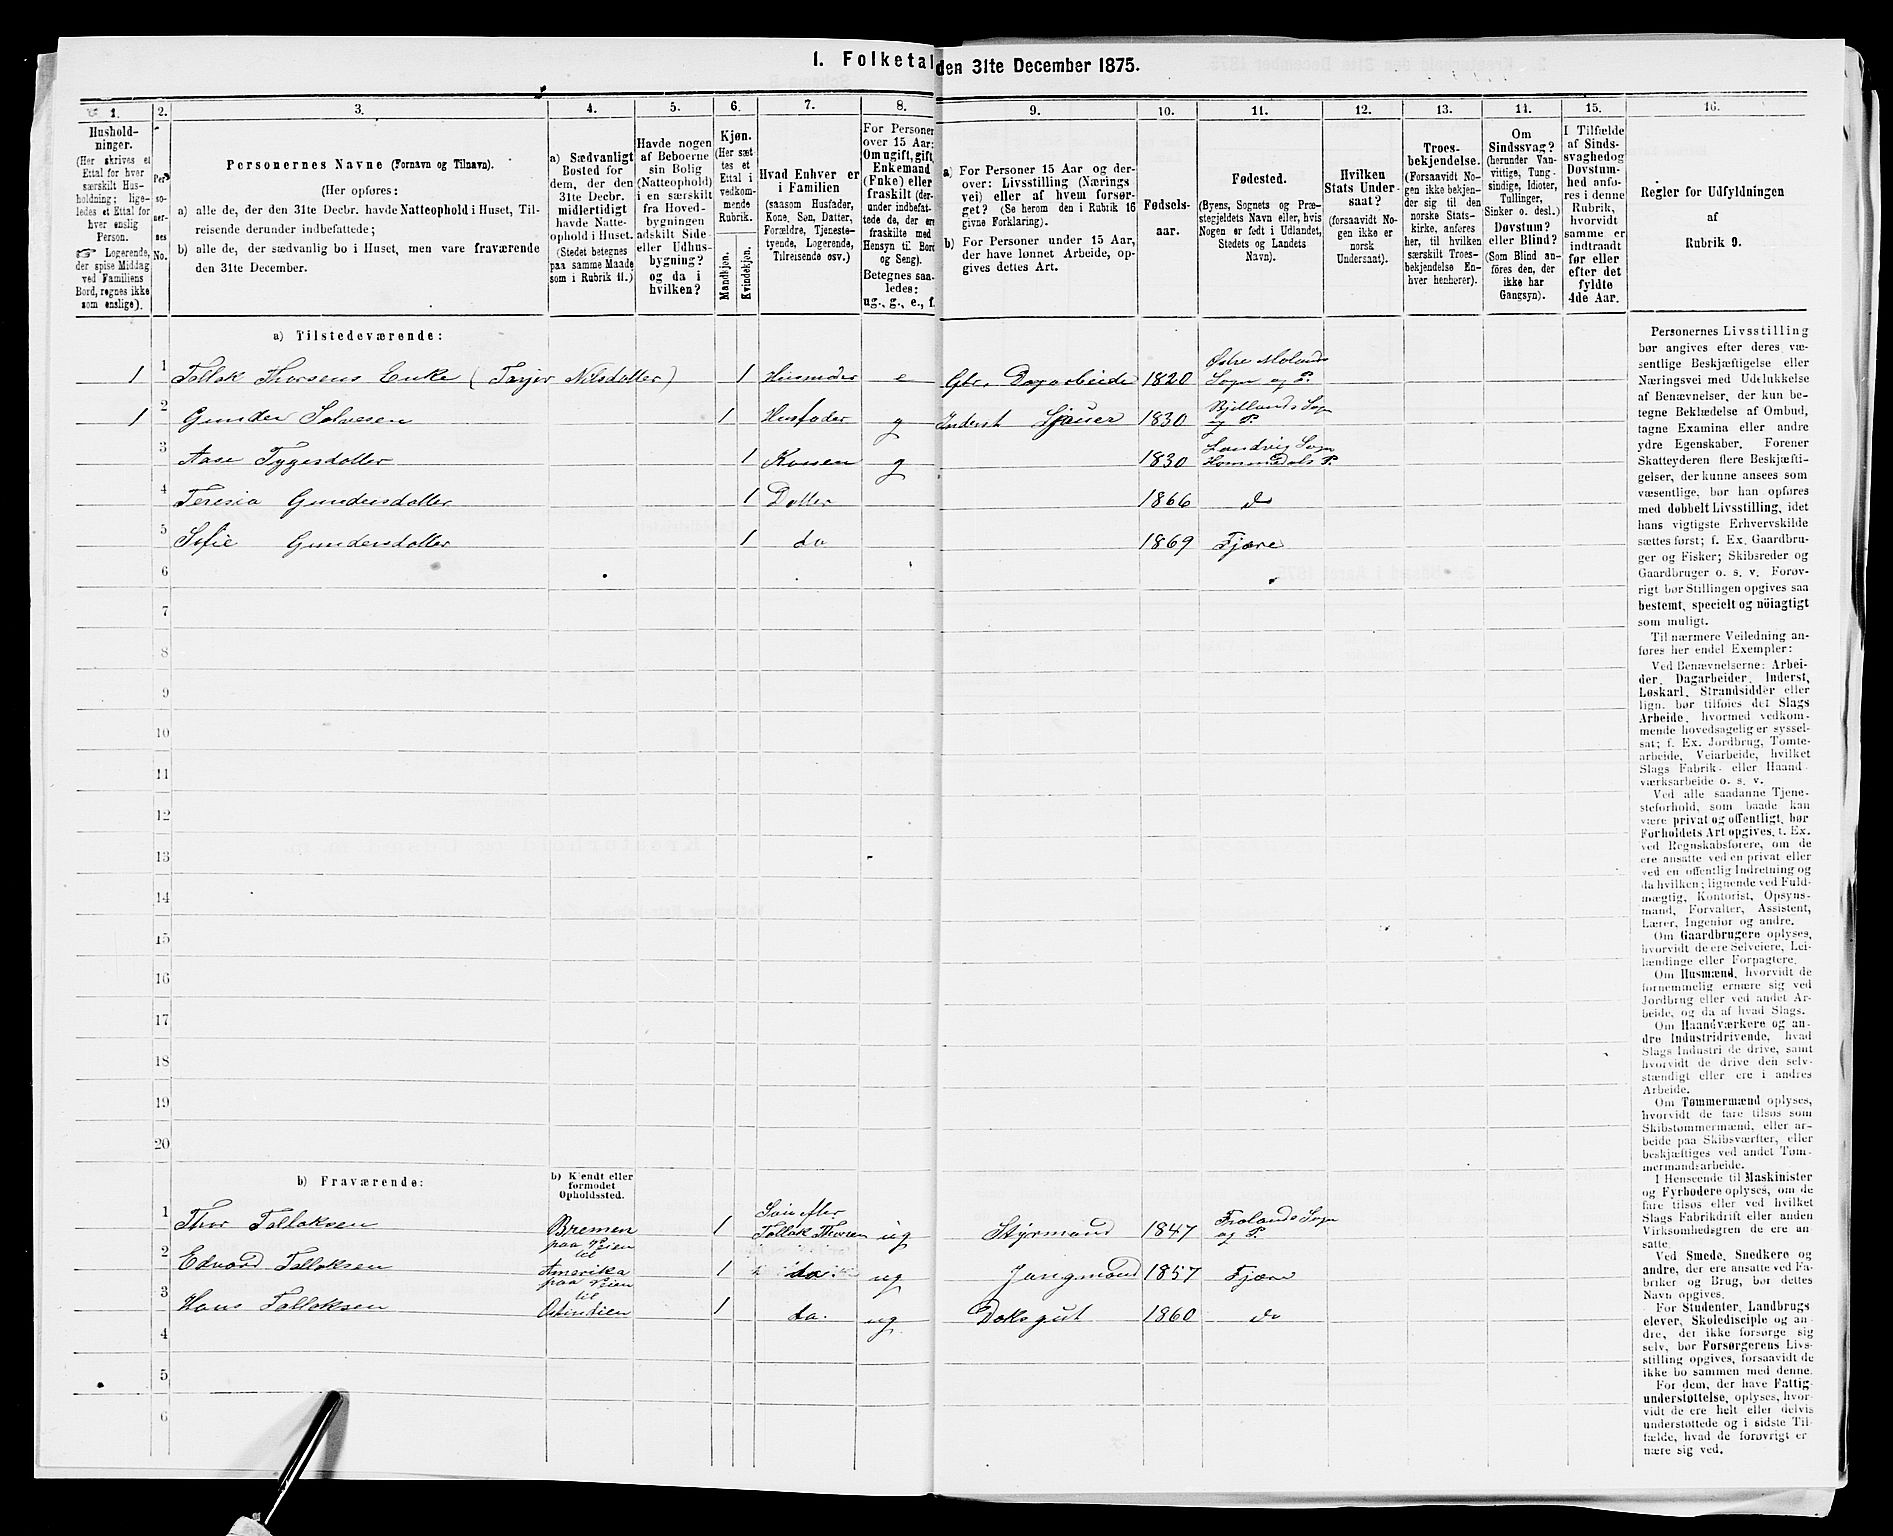 1. Folketal den 31te December 1875.
1. 2. 3. 4. 5. 6. 7. 8. 9. 10. 11. 12. 13. 14. 15. 16.
Hushold-
ninger.
(Her skrives et
Ettal for hver
særskilt Hus-
holdning; lige-
ledes et Ettal for
hver enslig
Person.
☞ Logerende,
der spise Middag
ved Familiens
Bord, regnes ikke
som enslige).
Per-
so-
ner-
nes
No.
Personernes Navne (Fornavn og Tilnavn).
(Her opføres:
a) alle de, der den 31te Decbr. havde Natteophold i Huset, Til-
reisende derunder indbefattede;
b) alle de, der sædvanlig bo i Huset, men vare fraværende
den 31te December.
a) Sædvanligt
Bosted for
dem, der den
31te Decbr.
midlertidigt
havde Natte-
ophold i Huset.
(Stedet betegnes
paa samme Maade
som i Rubrik 11.)
Havde nogen
af Beboerne
sin Bolig
(Natteophold)
i en særskilt
fra Hoved-
bygningen
adskilt Side-
eller Udhus-
bygning?
og da i
hvilken?
Kjøn.
(Her sæt-
tes et
Ettal i
vedkom-
mende
Rubrik.
Mandkjøn.
Kvindekjøn.
Hvad Enhver er
i Familien
(saasom Husfader,
Kone, Søn, Datter,
Forældre, Tjeneste-
tyende, Logerende,
Tilreisende osv.)
For Personer
over 15 Aar:
Om ugift, gift,
Enkemand
(Enke) eller
fraskilt (der-
under indbefat-
tede de, der ere
fraskilte med
Hensyn til Bord
og Seng).
Betegnes saa-
ledes:
ug., g., e., f.
a) For Personer 15 Aar og der-
over: Livsstilling (Nærings-
vei) eller af hvem forsør-
get? (Se herom den i Rubrik 16
givne Forklaring).
b) For Personer under 15 Aar,
der have lønnet Arbeide, op-
gives dettes Art.
Fødsels-
aar.
Fødested.
(Byens, Sognets og Præ-
stegjeldets Navn eller, hvis
Nogen er født i Udlandet,
Stedets og Landets
Navn).
Hvilken
Stats Under-
saat?
(forsaavidt No-
gen ikke er
norsk
Undersaat).
Troes-
bekjendelse.
(Forsaavidt No-
gen ikke bekjen-
der sig til den
norske Stats-
kirke, anføres
her, til hvilken
særskilt Troes-
bekjendelse En-
hver henhører).
Om
Sindssvag?
(herunder Van-
vittige, Tung-
sindige, Idioter,
Tullinger,
Sinker o. desl.)
Døvstum?
eller Blind?
(Som Blind an-
føres den, der
ikke har
Gangsyn).
I Tilfælde
af Sinds-
svaghed og
Døvstum-
hed anfø-
res i denne
Rubrik,
hvorvidt
samme er
indtraadt
før eller
efter det
fyldte
4de Aar.
Regler for Udfyldningen
af
Rubrik 9.
a) Tilstedeværende:
1 1 Tallak Thorsens Enke (Tarjer Nilsdatter) 1 Husmoder e Gbr. Dagarbeide 1820 Østre Molands
Sogn og P.
1 2 Gunder Salvesen 1 Husfader g Inderst Sjauer 1830 Bjellands Sogn
og P.
3 Aase Tygesdatter 1 Konen g 1830 Landvig Sogn
Hommedals P.
4 Teresia Gundersdatter 1 Datter 1866 do
5 Sofie Gundersdatter 1 do 1869 Fjære
6
7
8
9
10
11
12
13
14
15
16
17
18
19
20
b) Fraværende:
b) Kjendt eller
formodet
Opholdssted.
1 Thor Tallaksen Bremen 1 Søn efter
Tallak Thorsen ug Styrmand 1847 Frolands Sogn
og P.
2 Edvard Tallaksen paa Veien
til
Amerika 1 do. ug Jungmand 1857 Fjære
3 Hans Tallaksen paa Veien
til
Ostindien 1 do. ug. Doksgut 1860 do
4
5
6
Personernes Livsstilling
bør angives efter deres væ-
sentlige Beskjæftigelse eller
Næringsvei med Udelukkelse
af Benævnelser, der kun be-
tegne Beklædelse af Ombud,
tagne Examina eller andre
ydre Egenskaber. Forener
Skatteyderen flere Beskjæfti-
gelser, der kunne ansees som
væsentlige, bør han opføres
med dobbelt Livsstilling, idet
hans vigtigste Erhvervskilde
sættes først; f. Ex. Gaardbru-
ger og Fisker; Skibsreder og
Gaardbruger o. s. v. Forøv-
rigt bør Stillingen opgives saa
bestemt, specielt og nöiagtigt
som muligt.
Til nærmere Veiledning an-
føres her endel Exempler:
Ved Benævnelserne: Arbei-
der, Dagarbeider, Inderst,
Løskarl, Strandsidder eller
lign. bør tilføies det Slags
Arbeide, hvormed vedkom-
mende hovedsagelig er syssel-
sat; f. Ex. Jordbrug, Tomte-
arbeide, Veiarbeide, hvilket
Slags Fabrik- eller Haand-
værksarbeide o. s. v.
Ved alle saadanne Tjene-
steforhold, som baade kan
være privat og offentligt, bør
Forholdets Art opgives, t. Ex.
ved Regnskabsførere, om de
ere ansatte ved en privat eller
ved en offentlig Indretning og
da hvilken; lignende ved Fuld-
mægtig, Kontorist, Opsyns-
mand, Forvalter, Assistent,
Lærer, Ingeniør og andre.
Om Gaardbrugere oplyses,
hvorvidt de ere Selveiere, Lei-
lændinge eller Forpagtere.
Om Husmænd, hvorvidt de
fornemmelig ernære sig ved
Jordbrug eller ved andet Ar-
beide, og da af hvad Slags.
Om Haandværkere og an-
dre Industridrivende, hvad
Slags Industri de drive, samt
hvorvidt de drive den selv-
stændigt eller ere i andres
Arbeide.
Om Tømmermænd oplyses,
hvorvidt de fare tilsøs som
Skibstømmermænd, eller ar-
beide paa Skibsværfter, eller
beskjæftiges ved andet Tøm-
mermandsarbeide.
I Henseende til Maskinister
og Fyrbødere oplyses, om de
fare tilsøs eller ved hvilket
Slags Fabrikdrift eller anden
Virksomhedsgren de ere an-
satte.
Ved Smede, Snedkere og
andre, der ere ansatte ved Fa-
briker og Brug, bør dettes
Navn opgives.
For Studenter, Landbrugs-
elever, Skoledisciple og an-
dre, der ikke forsørge sig
selv, bør Forsørgerens Livs-
stilling opgives, forsaavidt de
ikke bo sammen med denne.
For dem, der have Fattig-
understøttelse, oplyses, hvor-
vidt de ere helt eller delvis
understøttede og i sidste Til-
fælde, hvad de forøvrigt er-
nære sig ved.